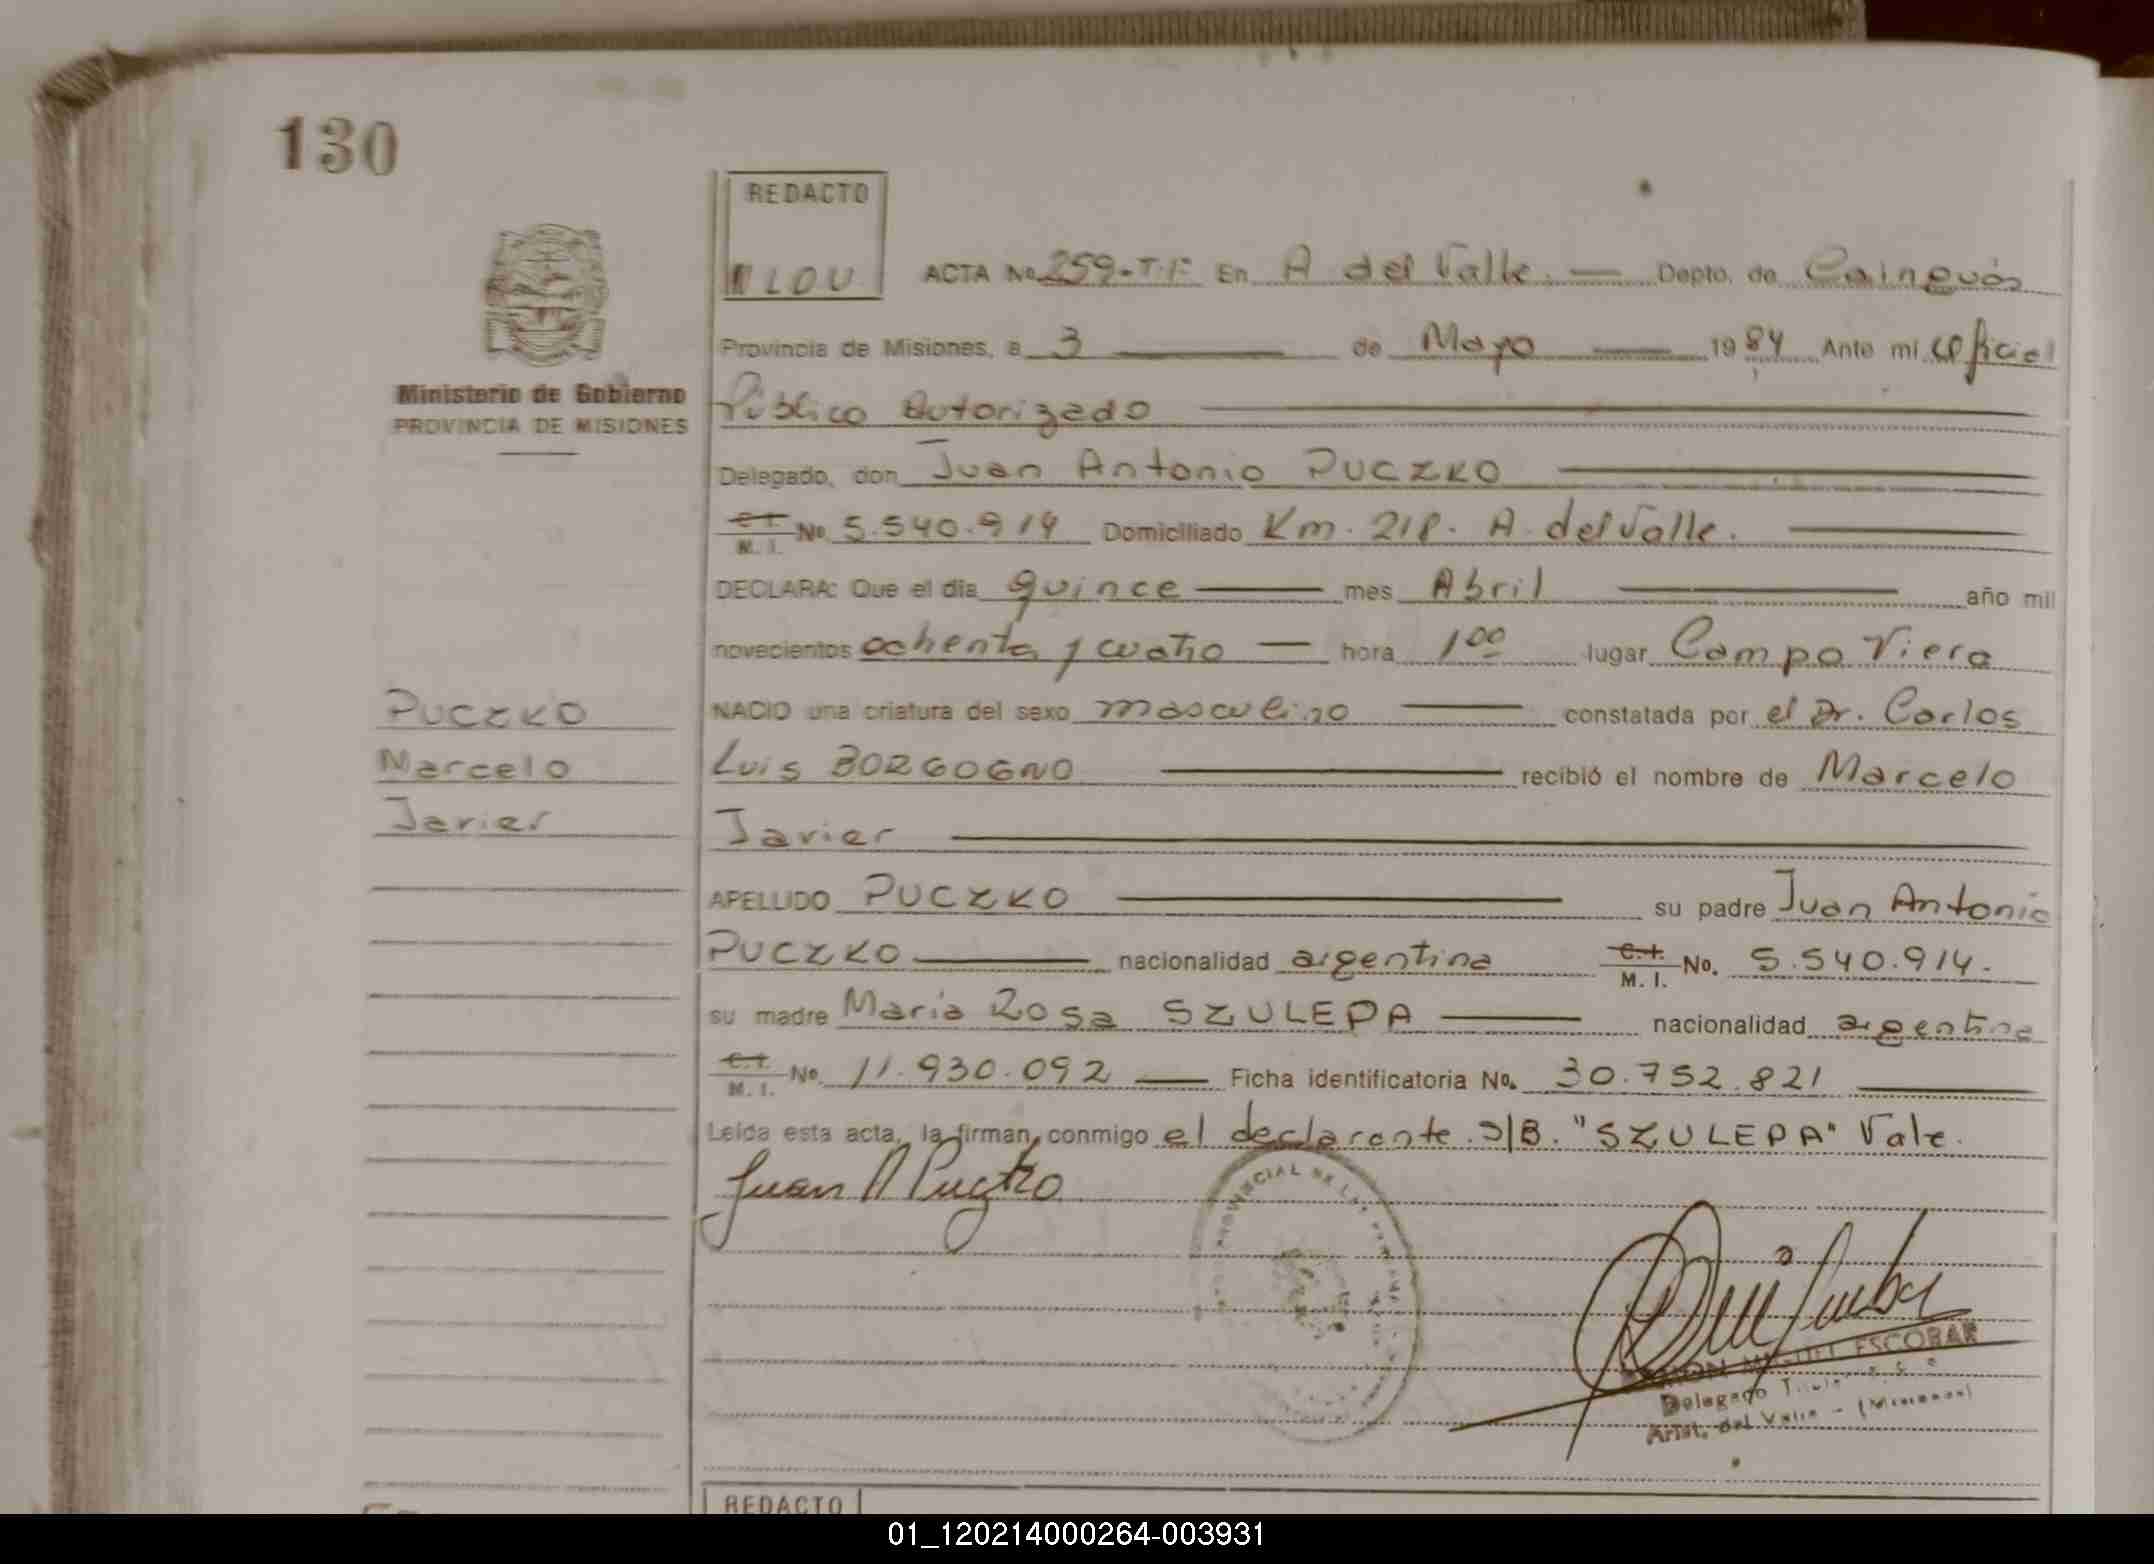 130
REDACTO
LOU.
ACTA No. 259-T.I- En A del Valle. Depto. de Cainguás
Ministerio de Gobierno
PROVINCIA DE MISIONES
Provincia de Misiones, a 3 de Mayo 1984 Ante mi oficial
Público Autorizado
Delegado, don Juan Antonio PUCZKO
C.I. M. I. No. 5.540.914 Domiciliado Km. 218. A. del Valle.
DECLARA: Que el día quince mes Abril año mil
novecientos ochenta y cuatro hora 1⁰⁰ lugar Campo Viera
PUCZKO
Marcelo
Javier
NACIO una criatura del sexo masculino constatada por el Dr. Carlos
Luis BORGOGNO recibió el nombre de Marcelo
Javier
APELLIDO PUCZKO su padre Juan Antonio
PUCZKO nacionalidad argentina C.I. M. I. No. 5.540.914.
su madre María Rosa SZULEPA nacionalidad argentina
C.I. M. I. No. 11.930.092 Ficha identificatoria No. 30.752.821
Leída esta acta, la firman conmigo el declarante. S/B. "SZULEPA" Vale.
Juan A Puczko
PROVINCIAL DE LAS
MIGUEL ESCOBAR
Delegado
Arist. del Valle - (Misiones)
REDACTO
01_120214000264-003931